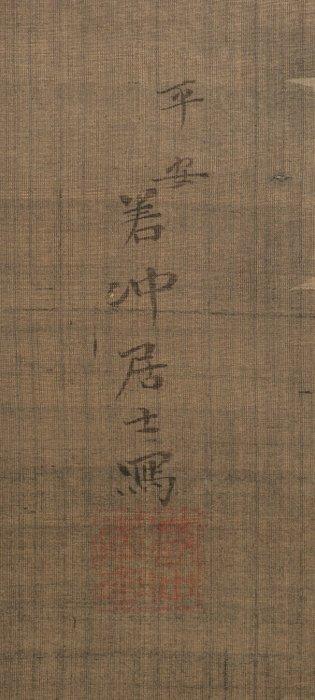 平安
若冲居士冩